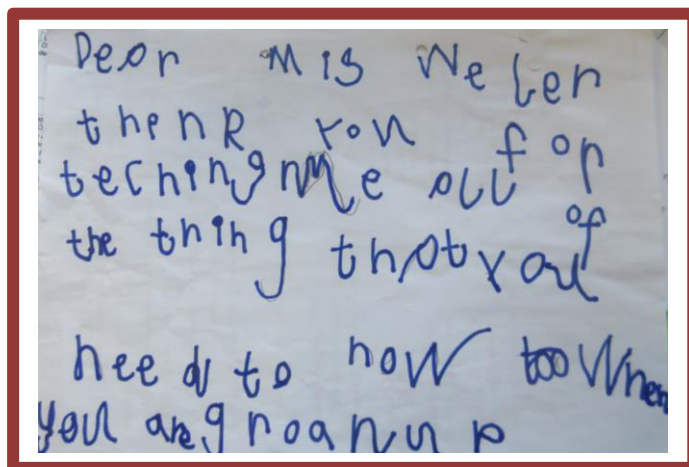 Dear Mis Weler
thenk you for
teching me all of
the thing that you
need to now too when
you are groanup